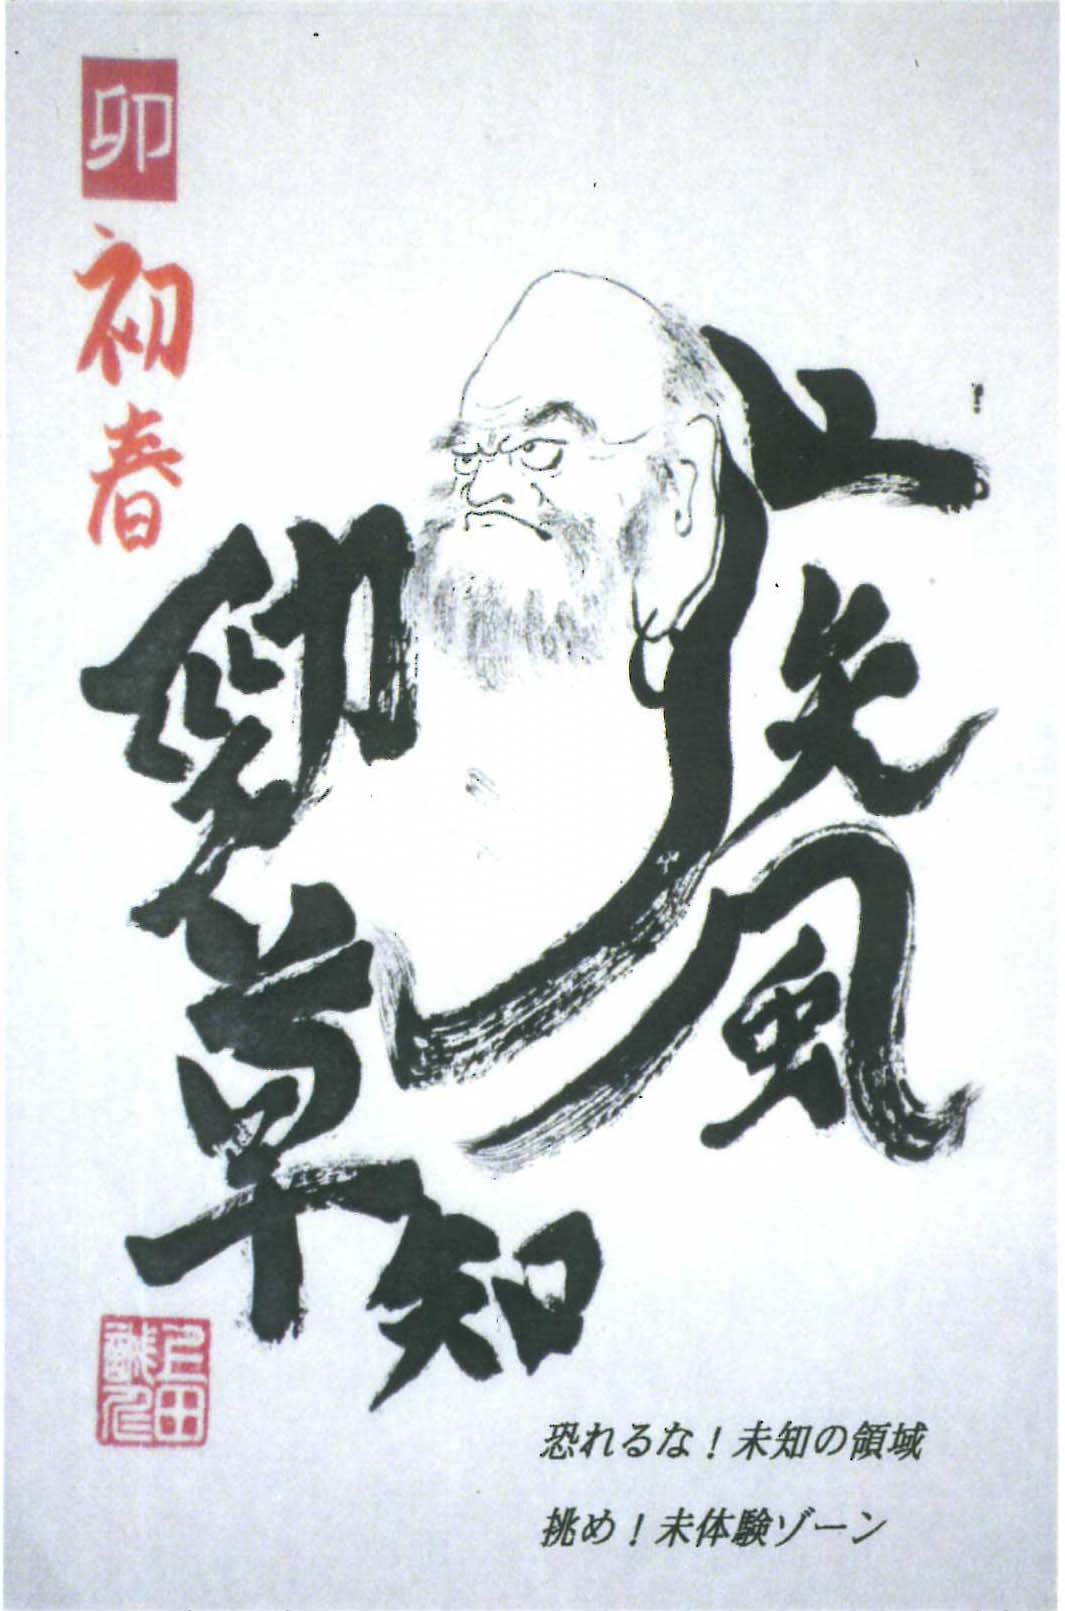 卯
初春
疾風
勁草知
恐れるな！未知の領域
挑め！未体験ゾーン